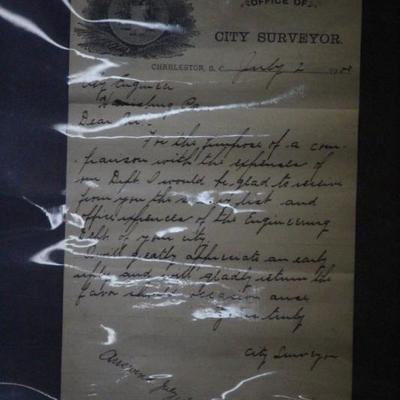 OFFICE OF
CITY SURVEYOR.
CHARLESTON, S. C. July 2
City Engineer
Harrisburg Pa.
Dear Sir:
For the purpose of a com-
parison with the expenses of
our Dept. I would be glad to receive
from you the list and
office expenses of the Engineering
Dept of your city.
Would greatly appreciate an early
reply and will gladly return the
favor should occasion arise
Yours truly
City Surveyor
Answered July